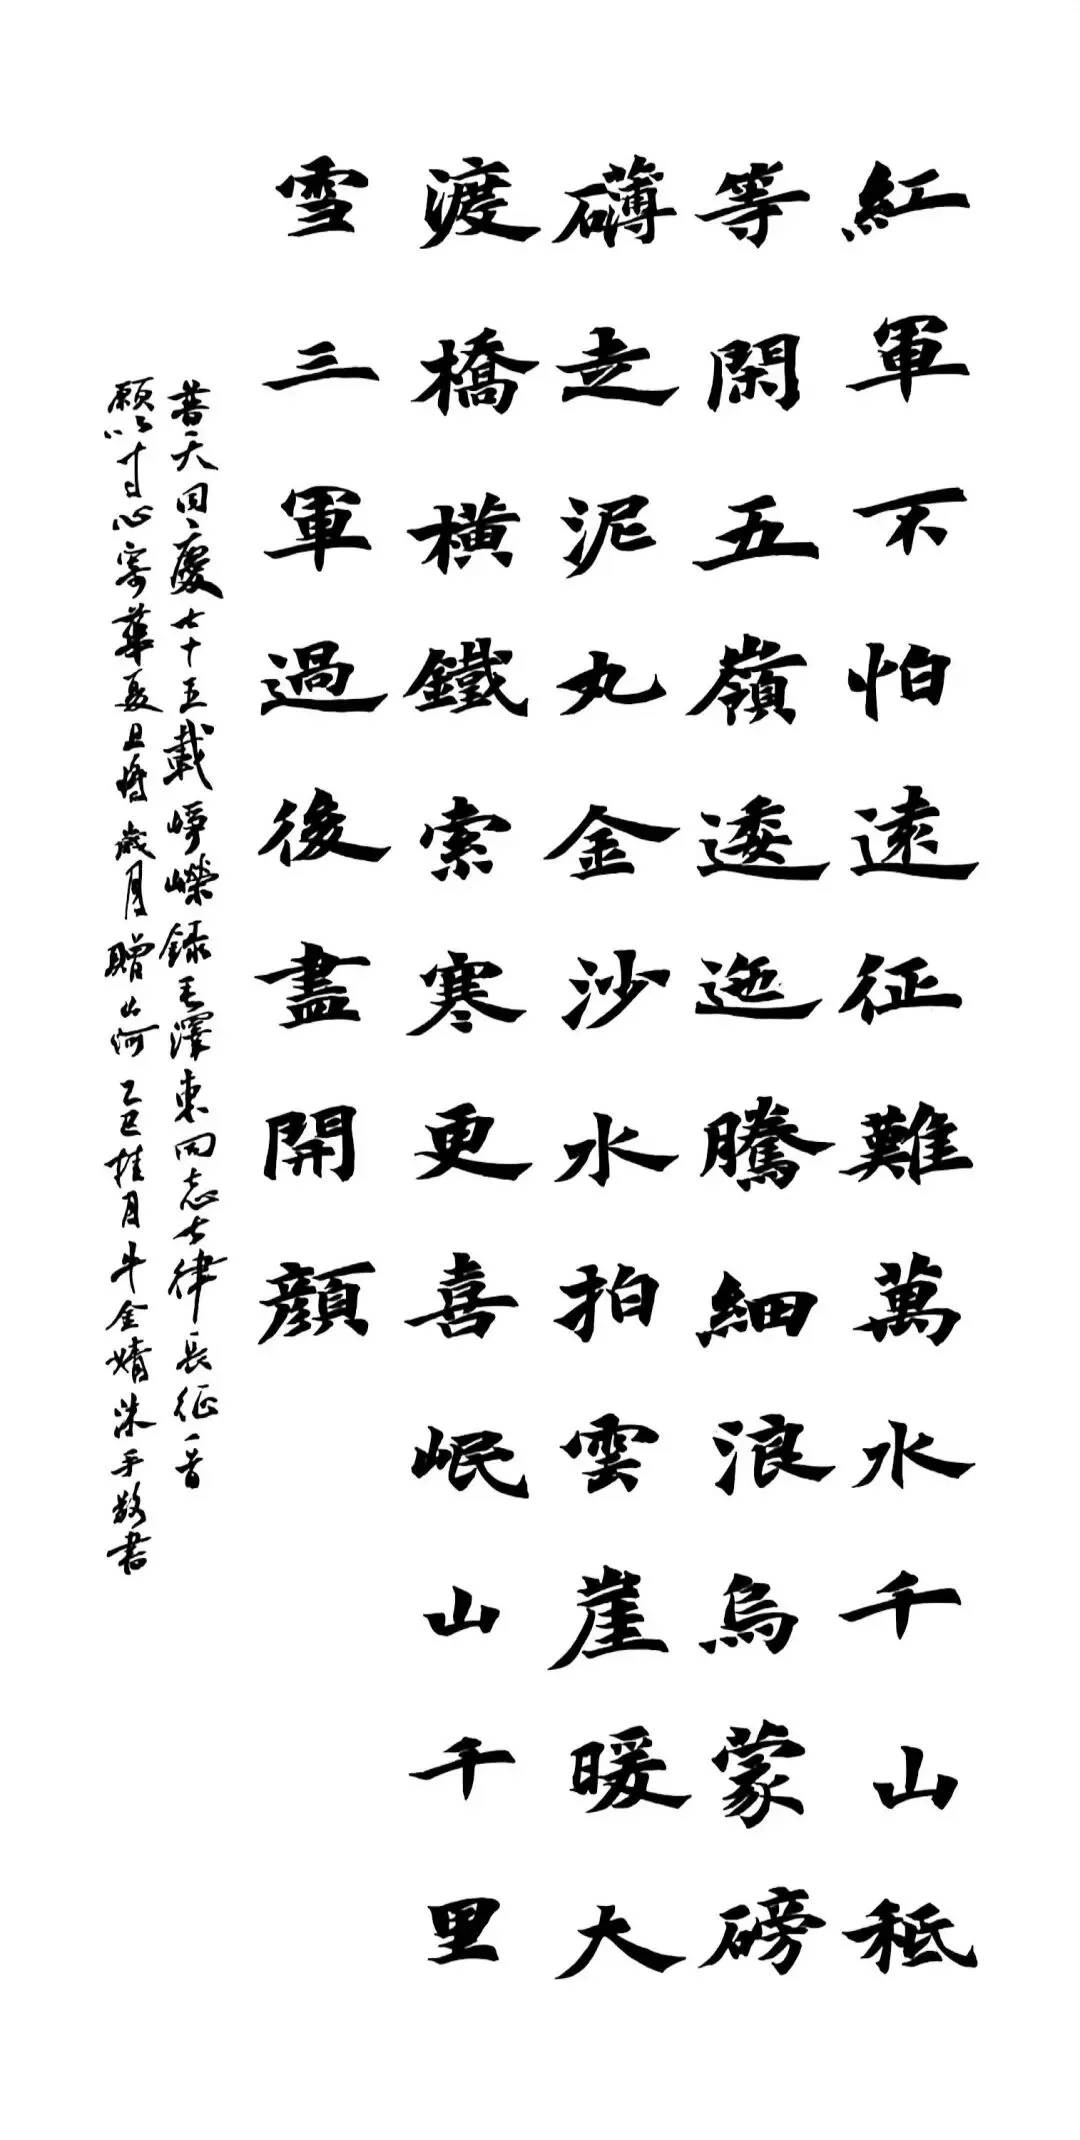 紅軍不怕遠征難萬水千山秪
等閑五嶺逶迤騰細浪烏蒙磅
礴走泥丸金沙水拍雲崖暖大
渡橋橫鐵索寒更喜岷山千里
雪三軍過後盡開顏
普天同慶七十五載崢嶸錄毛澤東同志七律長征一首
願以寸心寄華夏且將歲月贈山河乙巳桂月牛金婧沐手敬書